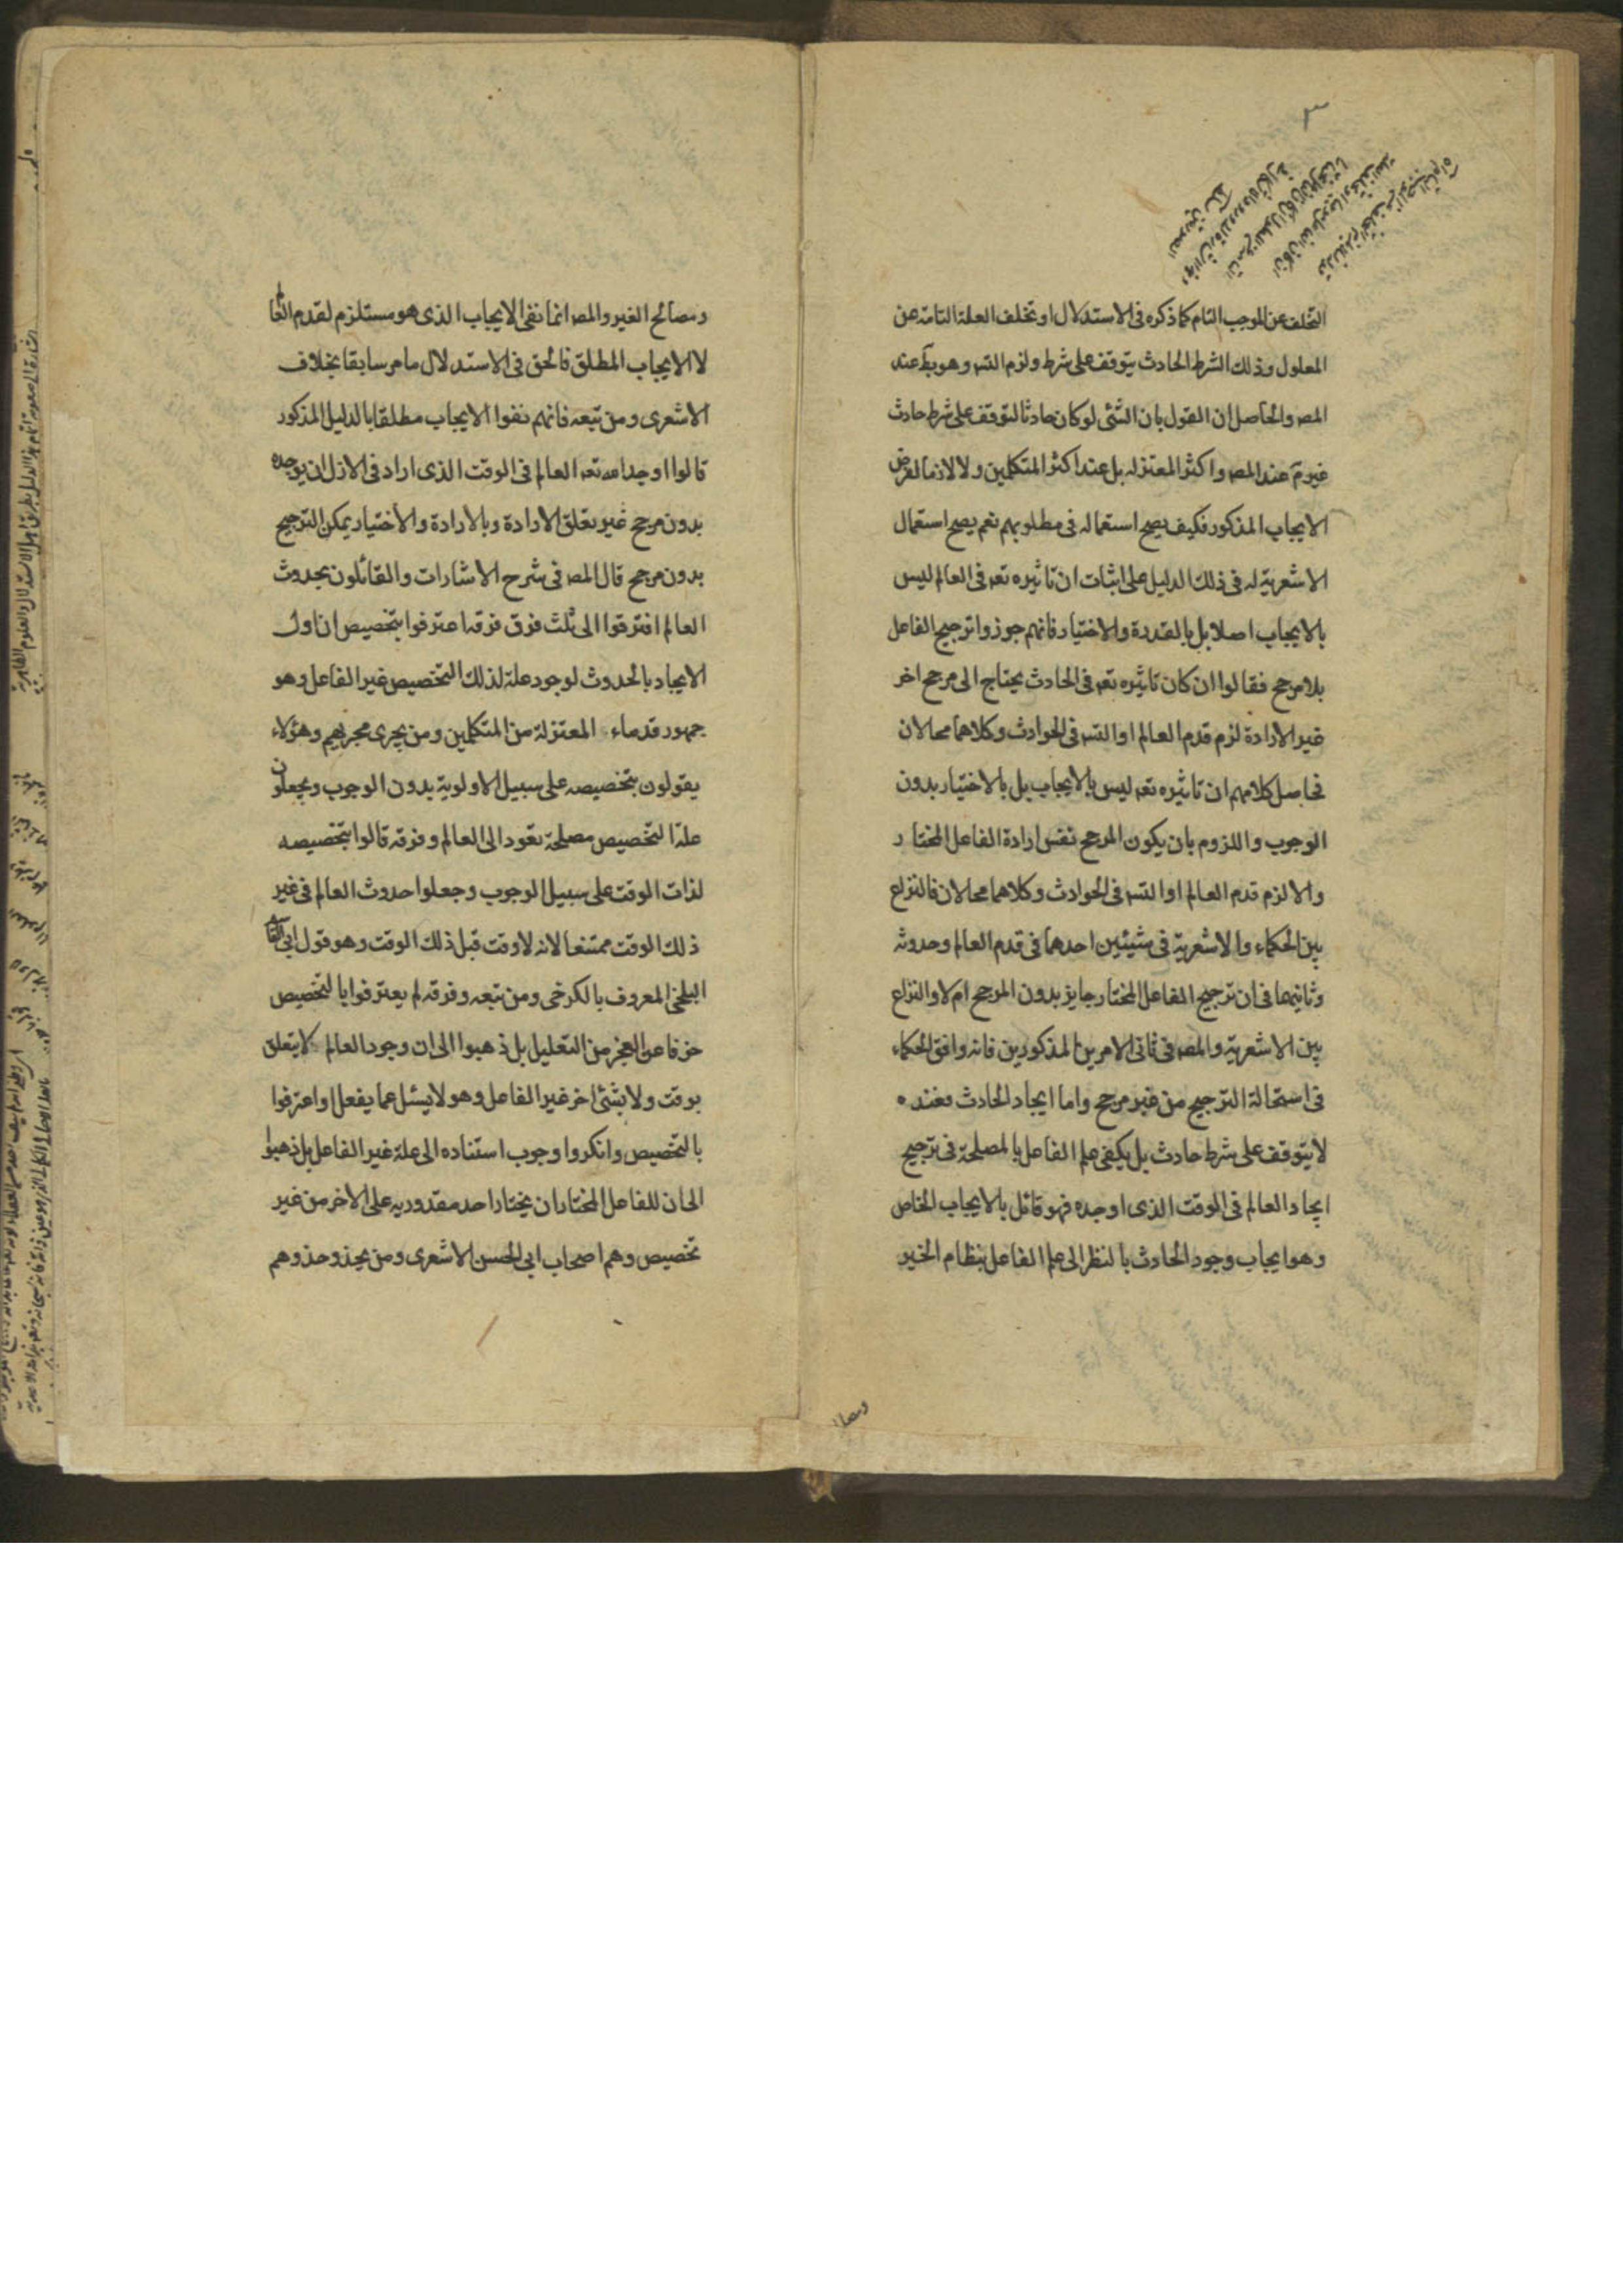 التخلف عن الموجب التام كما ذكره فى الاستدلال او تخلف العلة التامة عن
المعلول وذلك الشرط الحادث يتوقف على شرط ولزم التسـ وهو بط عند
المصـ والحاصل ان القول بان الشئ لو كان حادثا لتوقف على شرط حادث
غير تم عند المصـ واكثر المعتزله بل عند اكثر المتكلمين ولا لازما لفرض
الايجاب المذكور فكيف يصح استعماله فى مطلوبهم نعم يصح استعمال
الاشعرية له فى ذلك الدليل على اثبات ان تاثيره تعـ فى العالم ليس
بالايجاب اصلا بل بالقدرة والاختيار فانهم جوزوا ترجيح الفاعل
بلا مرجح فقالوا ان كان تاثيره تعـ فى الحادث يحتاج الى مرجح اخر
غير الارادة لزم قدم العالم او التسـ فى الحوادث وكلاهما محالان
فحاصل كلامهم ان تاثيره تعـ ليس بالايجاب بل بالاختيار بدون
الوجوب واللزوم بان يكون المرجح نفس ارادة الفاعل المختار
والا لزم قدم العالم او التسـ فى الحوادث وكلاهما محالان فالنزاع
بين الحكماء والاشعرية فى شيئين احدهما فى قدم العالم وحدوثه
وثانيهما فى ان ترجيح الفاعل المختار جايز بدون المرجح ام لا والنزاع
بين الاشعرية والمصـ فى ثانى الامرين المذكورين فانه وافق الحكماء
فى استحالة الترجيح من غير مرجح واما ايجاد الحادث فعنده
لا يتوقف على شرط حادث بل يكفى علم الفاعل بالمصلحة فى ترجيح
ايجاد العالم فى الوقت الذى اوجده فهو قائل بالايجاب الخاص
وهو ايجاب وجود الحادث بالنظر الى علم الفاعل بنظام الخير
ومصا
ومصالح الغير والمصـ انما نفى الايجاب الذى هو مستلزم لقدم العالم
لا الايجاب المطلق فالحق فى الاستدلال ما مر سابقا بخلاف
الاشعرى ومن تبعه فانهم نفوا الايجاب مطلقا بالدليل المذكور
قالوا اوجد الله تعـ العالم فى الوقت الذى اراد فى الازل ان يوجده
بدون مرجح غير تعلق الارادة وبالارادة والاختيار يمكن الترجيح
بدون مرجح قال المصـ فى شرح الاشارات والقائلون بحدوث
العالم افترقوا الى ثلث فرق فرقه اعترفوا بتخصيص ان اول
الايجاد بالحدوث لوجود علة لذلك التخصيص غير الفاعل وهو
جمهور قدماء المعتزلة من المتكلمين ومن يجرى مجريهم وهؤلاء
يقولون بتخصيصه على سبيل الاولوية بدون الوجوب ويجعلون
علة التخصيص مصلحة تعود الى العالم وفرقه قالوا بتخصيصه
لذات الوقت على سبيل الوجوب وجعلوا حدوث العالم فى غير
ذلك الوقت ممتنعا لانه لا وقت قبل ذلك الوقت وهو قول ابى القاسم
البلخى المعروف بالكرخى ومن تبعه وفرقه لم يعترفوا بالتخصيص
خوفا عن العجز من التعليل بل ذهبوا الى ان وجود العالم لا يتعلق
بوقت ولا بشئ اخر غير الفاعل وهو لا يسئل عما يفعل او اعترفوا
بالتخصيص وانكروا وجوب استناده الى علة غير الفاعل بل ذهبوا
الى ان للفاعل المختار ان يختار احد مقدوريه على الاخر من غير
تخصيص وهم اصحاب ابى الحسن الاشعرى ومن يحذو حذوهم